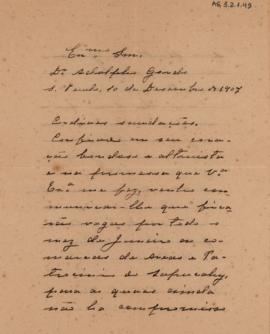 AG.3.2.1.49
Exmo Snr.
Dr. Adolpho Gordo
S. Paulo, 10 de Dezembro de 1907
Cordiaes saudações.
Confiado em seu cora-
ção bondoso e altruista
e na promessa que V.
Exa me fez, venho com-
municar-lhe que fica-
rão vagas por todo o
mez de Janeiro as co-
marcas de Avaré e Pa-
trocinio de Sapucahy,
para as quaes ainda
não ha compromisso